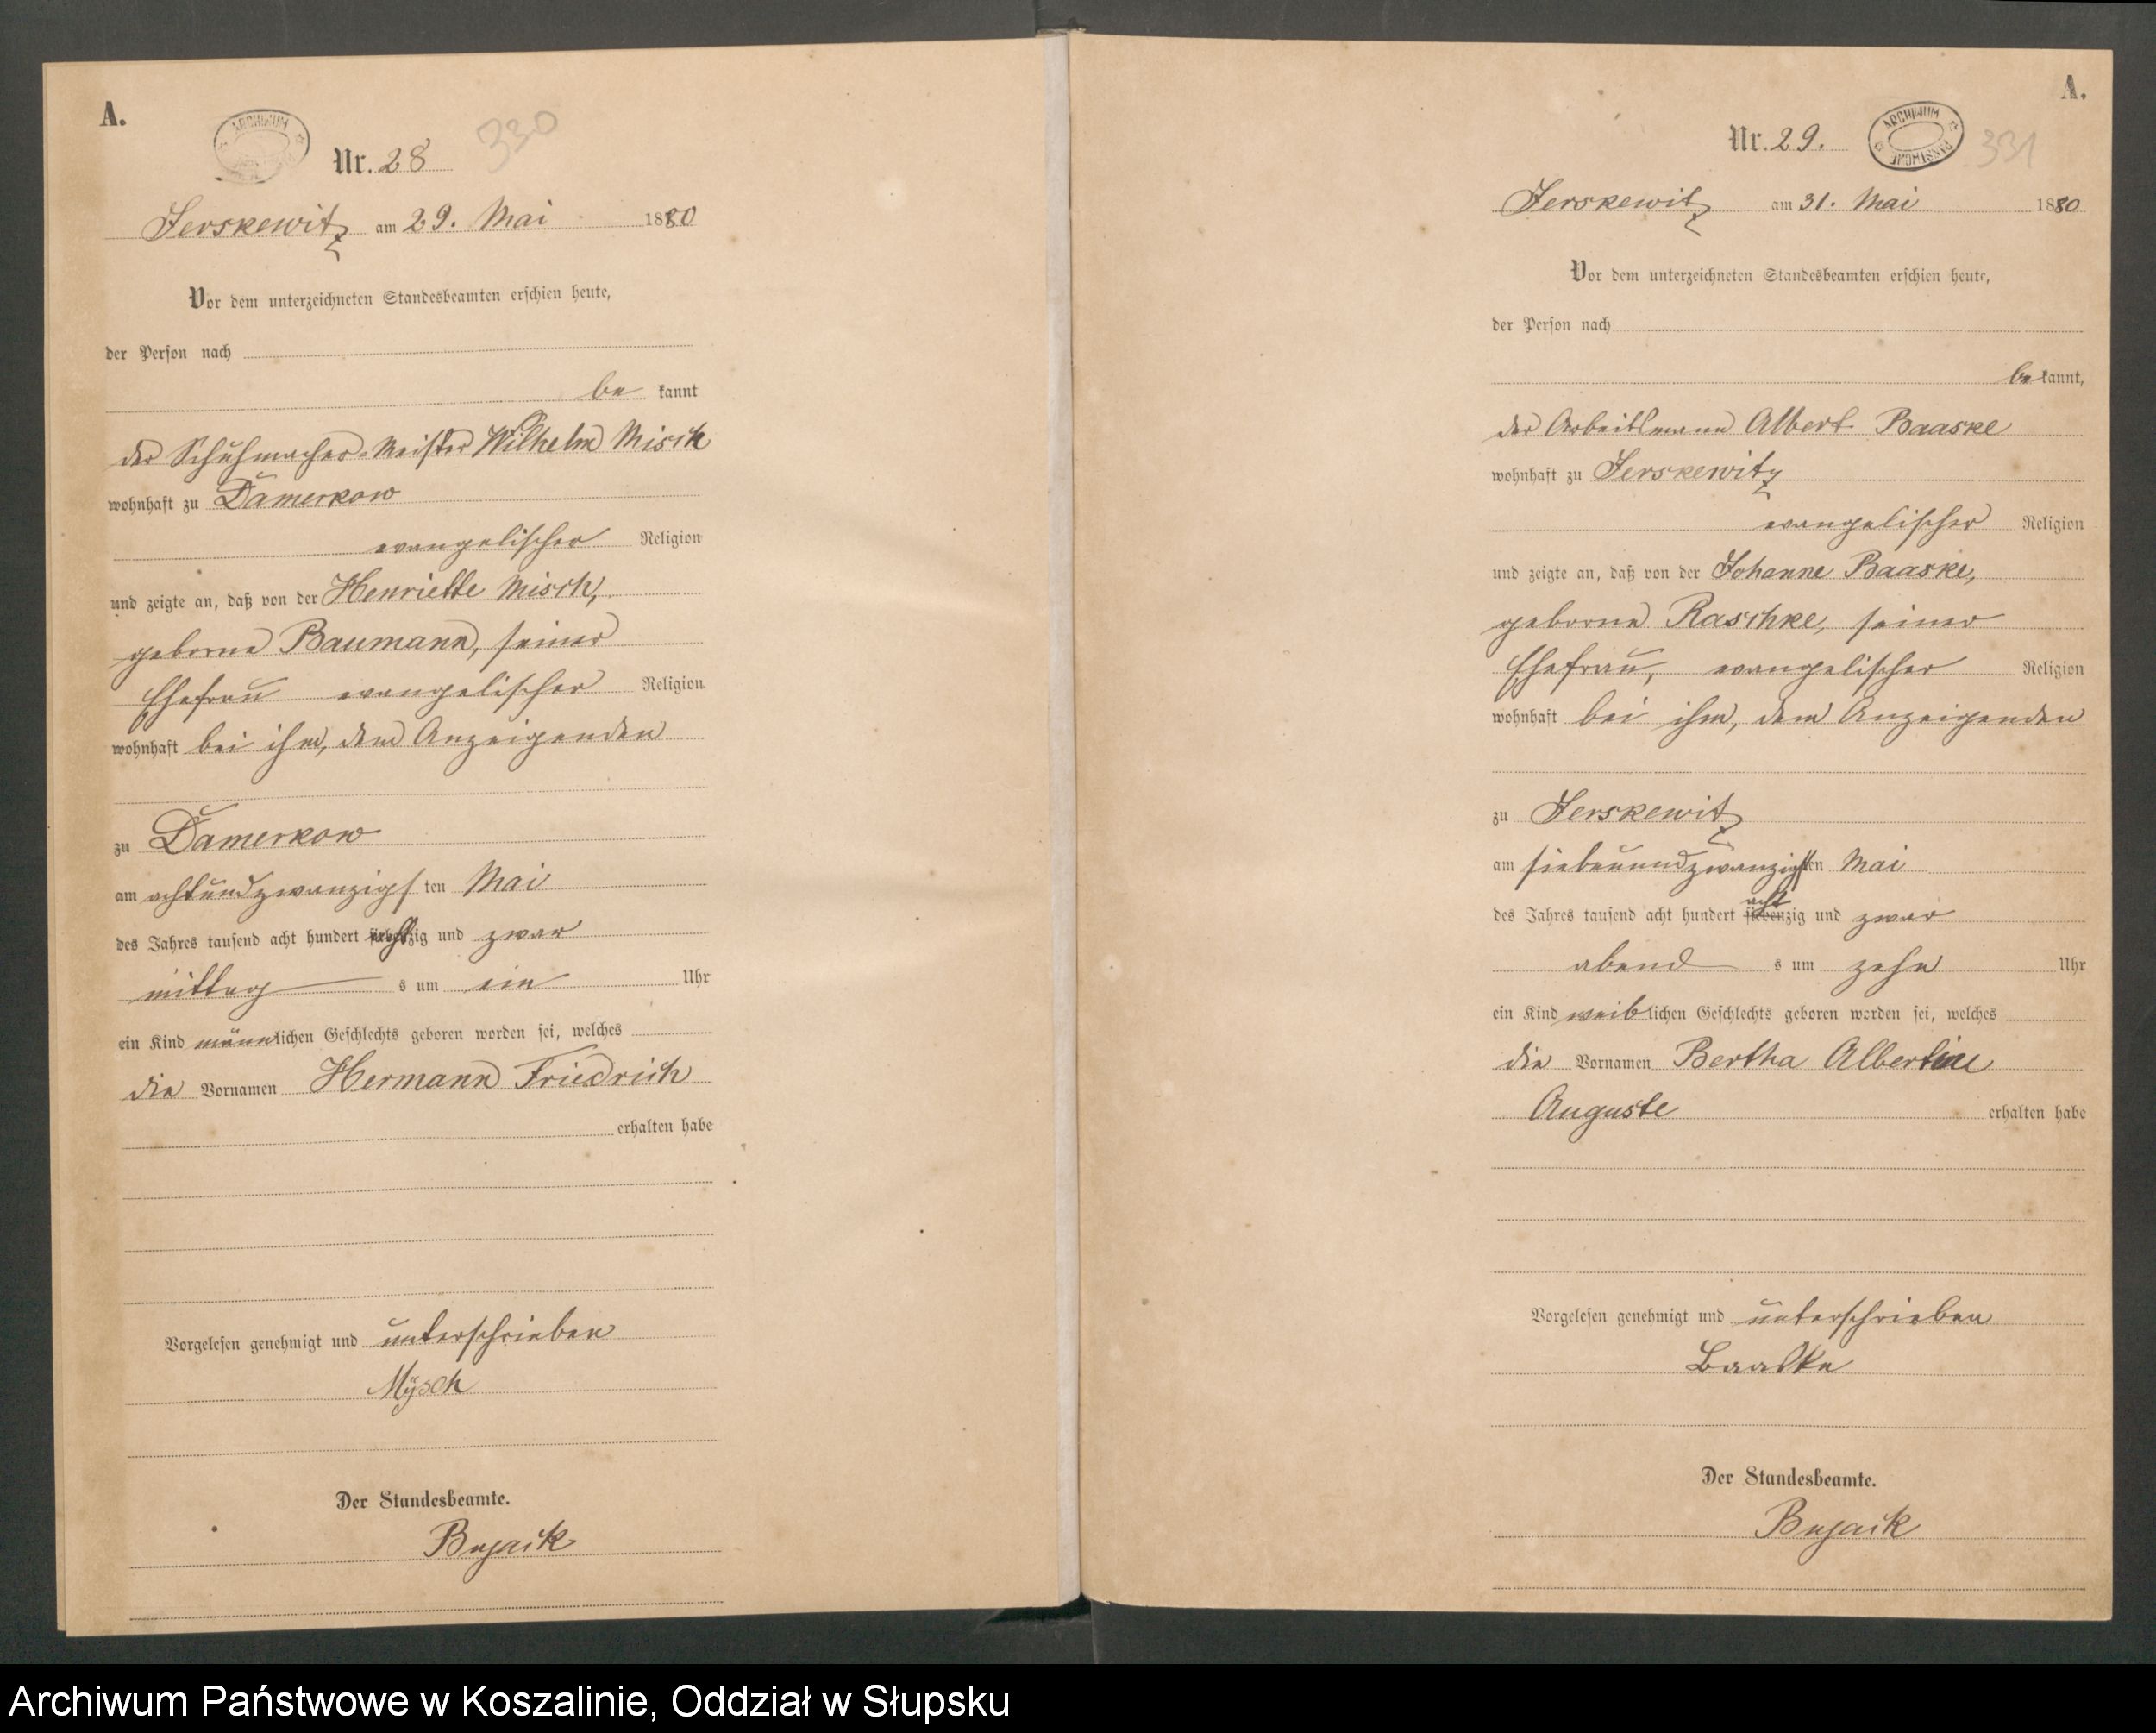 A.
ARCHIWUM
Nr. 28
330
Jerskewitz am 29. Mai 1880
Vor dem unterzeichneten Standesbeamten erschien heute,
der Person nach
be kannt
der Schuhmacher-Meister Wilhelm Misch
wohnhaft zu Damerkow
evangelischer Religion
und zeigte an, daß von der Henriette Misch,
geborne Baumann, seiner
Ehefrau evangelischer Religion
wohnhaft bei ihm, dem Anzeigenden
zu Damerkow
am achtundzwanzigs ten Mai
des Jahres tausend acht hundert achtzig und zwar
mittag s um ein Uhr
ein Kind männlichen Geschlechts geboren worden sei, welches
die Vornamen Hermann Friedrich
erhalten habe
Vorgelesen genehmigt und unterschrieben
Mÿsch
Der Standesbeamte.
Bujack
A.
Nr. 29.
ARCHIWUM PAŃSTWOWE
331
Jerskewitz am 31. Mai 1880
Vor dem unterzeichneten Standesbeamten erschien heute,
der Person nach
be kannt,
der Arbeitsmann Albert Baaske
wohnhaft zu Jerskewitz
evangelischer Religion
und zeigte an, daß von der Johanne Baaske,
geborne Raschke, seiner
Ehefrau, evangelischer Religion
wohnhaft bei ihm, dem Anzeigenden
zu Jerskewitz
am siebenundzwanzigsten Mai
acht
des Jahres tausend acht hundert siebenzig und zwar
abend s um zehn Uhr
ein Kind weiblichen Geschlechts geboren worden sei, welches
die Vornamen Bertha Albertine
Auguste erhalten habe
Vorgelesen genehmigt und unterschrieben
Baaske
Der Standesbeamte.
Bujack
Archiwum Państwowe w Koszalinie, Oddział w Słupsku